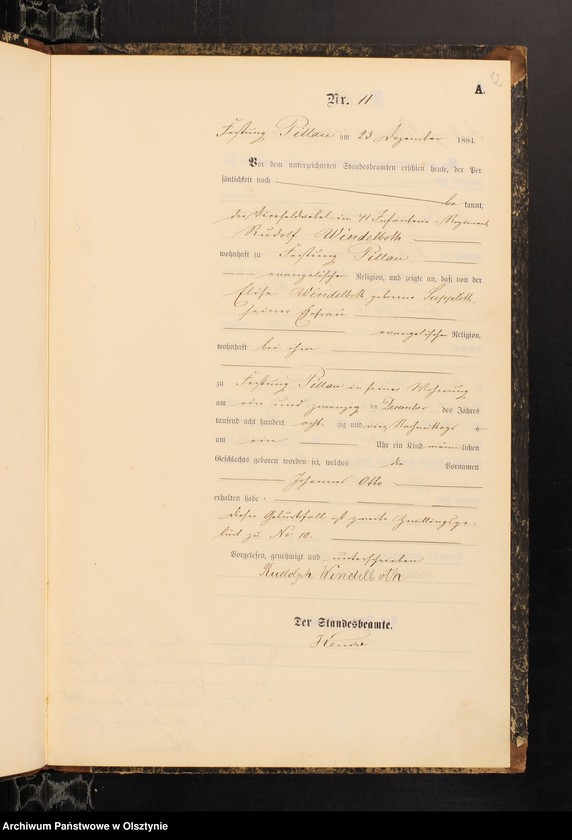 A.
12
Nr. 11
Festung Pillau am 23 Dezember 1884.
Vor dem unterzeichneten Standesbeamten erschien heute, der Per-
sönlichkeit nach
be kannt,
der Vicefeldwebel im 41 Infanterie-Regiment
Rudolf Windelboth
wohnhaft zu Festung Pillau
evangelischer Religion, und zeigte an, daß von der
Elise Windelboth, geborene
seiner Ehefrau
evangelischer Religion,
wohnhaft bei ihm
zu Festung Pillau in seiner Wohnung
am ein und zwanzig ten Dezember des Jahres
tausend acht hundert acht zig und vier, Nachmittags
um ein Uhr ein Kind männ lichen
Geschlechts geboren worden sei, welches die Vornamen
Johannes Otto
erhalten habe.
Dieser Geburtsfall ist zweite Zwillingsge-
burt zu No: 10.
Vorgelesen, genehmigt und unterschrieben
Rudolph Windelboth
Der Standesbeamte.
Archiwum Państwowe w Olsztynie